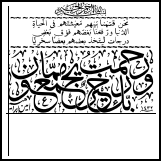 نحن قسمنا بينهم معيشتهم في الحياة
الدنيا ورفعنا بعضهم فوق بعض
درجات ليتخذ بعضهم بعضا سخريا
ورحمت ربك خير مما يجمعون